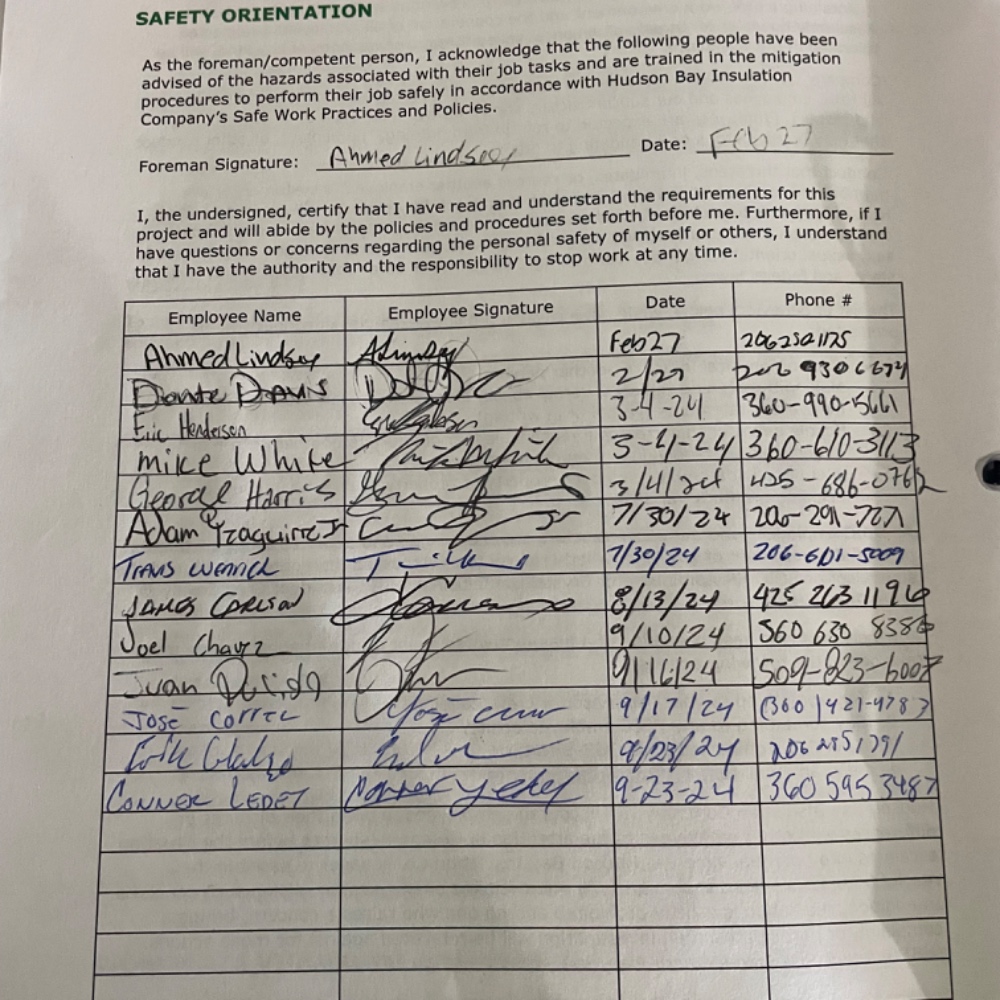 SAFETY ORIENTATION
As the foreman/competent person, I acknowledge that the following people have been
advised of the hazards associated with their job tasks and are trained in the mitigation
procedures to perform their job safely in accordance with Hudson Bay Insulation
Company's Safe Work Practices and Policies.
Foreman Signature: Ahmed Lindsey Date: Feb 27
I, the undersigned, certify that I have read and understand the requirements for this
project and will abide by the policies and procedures set forth before me. Furthermore, if I
have questions or concerns regarding the personal safety of myself or others, I understand
that I have the authority and the responsibility to stop work at any time.
Employee Name Employee Signature Date Phone #
Ahmed Lindsey Feb 27
Donte Davis 2/27
Eric Henderson 3-4-24 360-990-5661
mike White 3-4-24 360-610-3113
George Harris 3/4/24 425-686-0762
Adam Yzaguirre Jr 7/30/24
7/30/24 206-601-5009
James Carlson 8/13/24 425 263 1196
Joel Chavez 9/10/24 360 630
Juan 9/16/24 509-823-6007
José 9/17/24 (360) 421-4783
9/23/24
CONNER LEDET Conner Ledet 9-23-24 360 595 3487